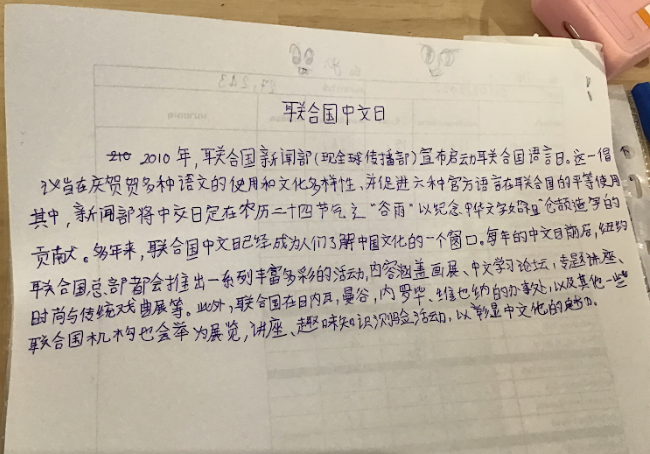 联合国中文日
2010年,联合国新闻部(现全球传播部)宣布启动联合国语言日。这一倡
议旨在庆贺多种语文的使用和文化多样性,并促进六种官方语言在联合国的平等使用
其中,新闻部将中文日定在农历二十四节气之“谷雨”以纪念“中华文字始祖”仓颉造字的
贡献。多年来,联合国中文日已经成为人们了解中国文化的一个窗口。每年的中文日前后,纽约
联合国总部都会推出一系列丰富多彩的活动,内容涵盖画展、中文学习论坛,专题讲座、
时尚与传统戏曲展等。此外,联合国在日内瓦,曼谷,内罗毕、维也纳的办事处,以及其他一些
联合国机构也会举为展览,讲座、趣味知识测验活动,以彰显中文化的魅力.